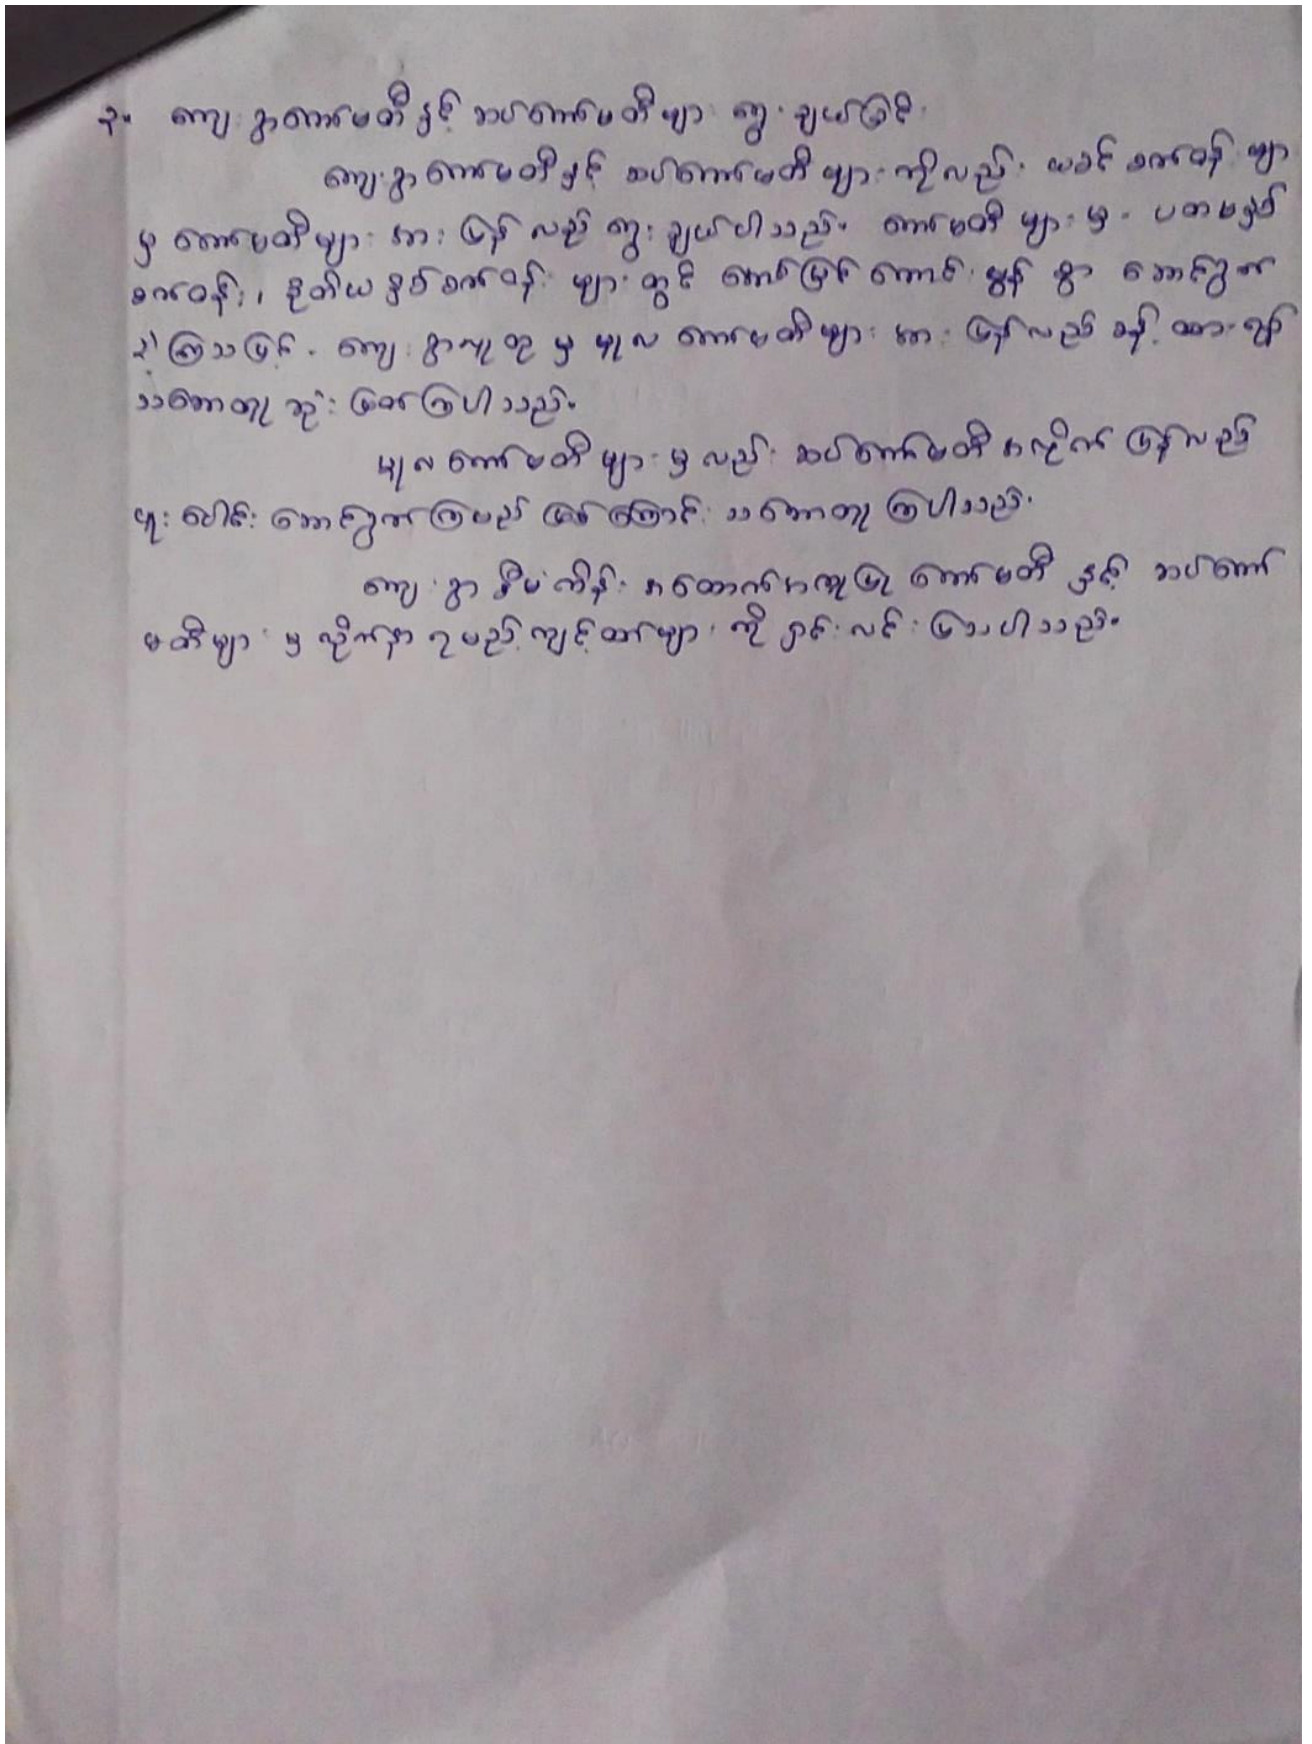 ၃။ ကျေးရွာကော်မတီနှင့် ဆပ်ကော်မတီများ ရွေးချယ်ခြင်း
ကျေးရွာကော်မတီနှင့် ဆပ်ကော်မတီများကိုလည်း ယခင် စက်ဝန်းများ
မှ ကော်မတီများအား ပြန်လည်ရွေးချယ်ပါသည်။ ကော်မတီများမှ ပထမနှစ်
စက်ဝန်း၊ ဒုတိယနှစ်စက်ဝန်းများတွင် ကောင်းမွန်စွာ ဆောင်ရွက်
ခဲ့ကြသဖြင့် ကျေးရွာလူထုမှ မူလကော်မတီများအား ပြန်လည်ခန့်ထားရန်
သဘောတူဆုံးဖြတ်ကြပါသည်။
မူလကော်မတီများမှလည်း ဆပ်ကော်မတီအလိုက် ပြန်လည်
ပူးပေါင်းဆောင်ရွက်ကြမည်ဖြစ်ကြောင်း သဘောတူကြပါသည်။
ကျေးရွာစီမံကိန်းအထောက်အကူပြုကော်မတီနှင့် ဆပ်ကော်
မတီများမှ လိုက်နာရမည့်ကျင့်ဝတ်များကို ရှင်းလင်းပြသပါသည်။